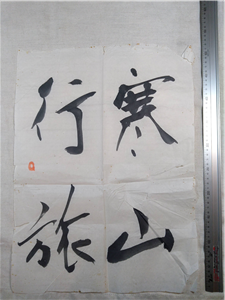 寒山
行旅